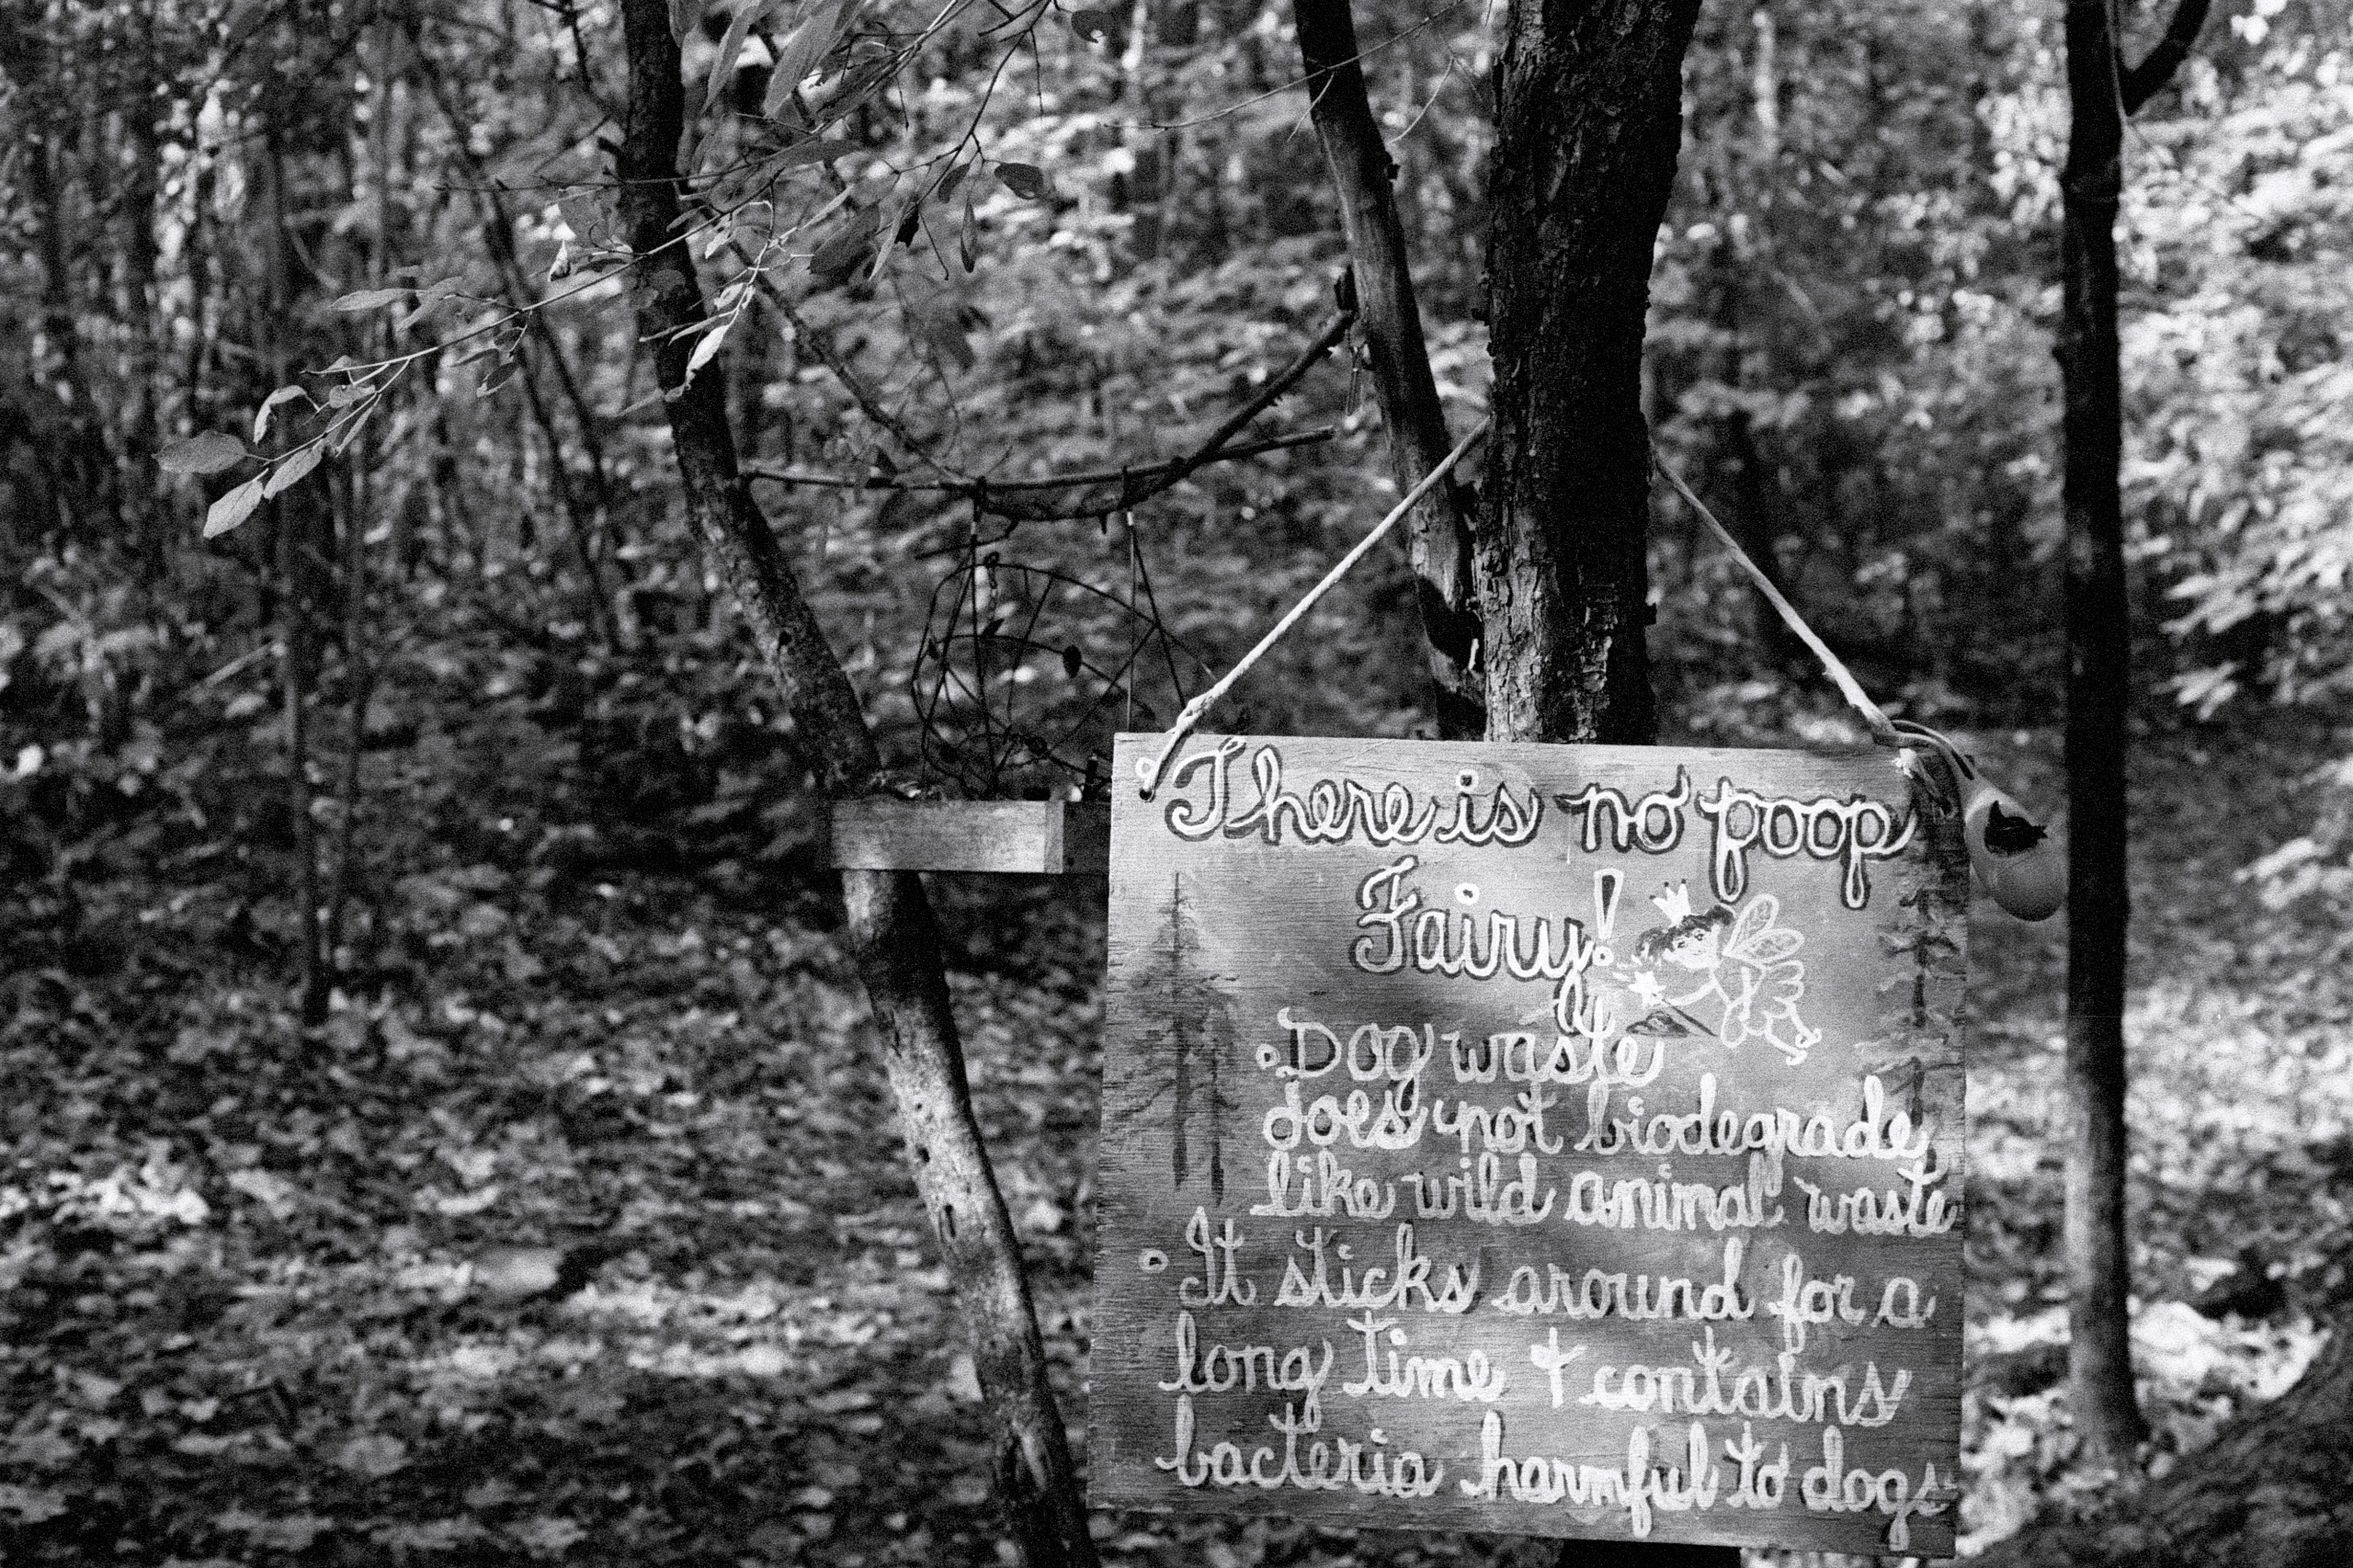 There is no poop
Fairy!
• Dog waste
does not biodegrade
like wild animal waste
• It sticks around for a
long time + contains
bacteria harmful to dogs